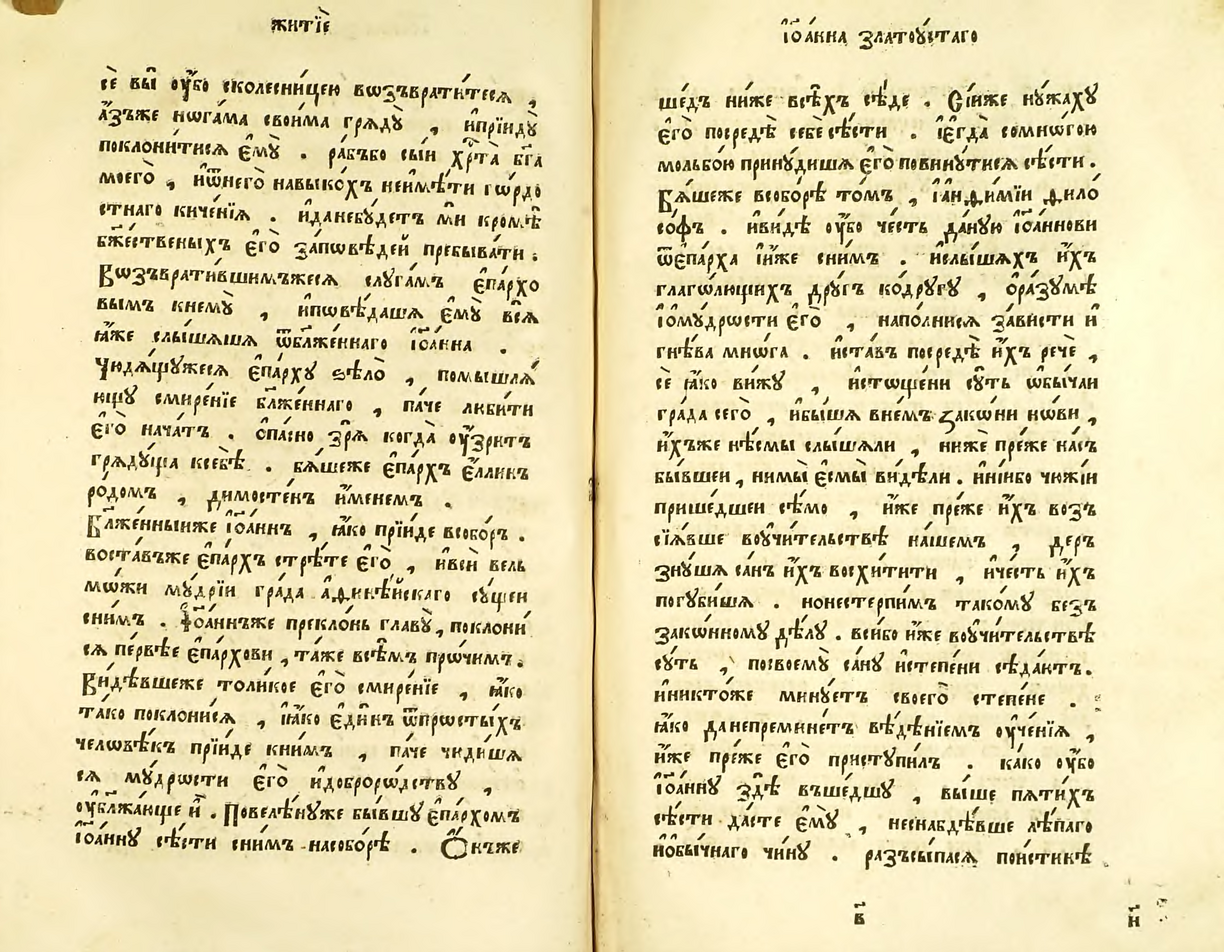 житїѐ
сѐ вы̀ ᲂу҆́бо сколесни́цею вѡзъврати́тесѧ ,
а҆́зъже нѡга́ма свои́ма грѧдꙋ̀ , и҆прїидꙋ̀
поклони́тисѧ є҆мꙋ̀ . ра́бъбо сы́и хрⷭ҇та̀ бг҃а
моего̀ , и҆ѿнего̀ навыко́хъ неи҆мѣ́ти гѡ́рдо
стнаго киче́нїѧ . и҆данебꙋ́детъ мѝ кромѣ̀
бжⷭ҇ественыхъ є҆го̀ за́пѡвѣдей пребыва́ти .
Вѡзъврати́вшимъжесѧ слꙋга́мъ є҆па́рхо
вымъ кнемꙋ̀ , и҆пѡвѣ́дашѧ є҆мꙋ̀ всѧ̀
ꙗ҆́же слы́шѧшѧ ѿблаже́ннаго і҆ѡа́нна .
Чюдѧ́щꙋжесѧ є҆па́рхꙋ ѕѣлѡ̀ , помышлѧ́
ющꙋ смире́нїе блаже́ннаго , па́че люби́ти
є҆го̀ нача́тъ . ѻ҆па́сно зрѧ̀ когда̀ ᲂу҆́зритъ
грѧдꙋ́ща ксебѣ̀ . бѧ́шеже є҆па́рхъ є҆́ллинъ
ро́домъ , димосте́нъ и҆́менемъ .
Блаже́нныиже і҆ѡа́ннъ , ꙗ҆́ко прїи́де всобо́ръ .
воста́въже є҆па́рхъ стрѣ́те є҆го̀ , и҆всѝ вель
мѡ́жи мꙋ́дрїи гра́да а҆ѳине́йскаго сꙋ́щеи
сни́мъ . І҆ѡа́ннъже прекло́нь главꙋ̀ , поклони́
сѧ пе́рвѣе є҆па́рхови , та́же всѣ́мъ прѡ́чимъ .
Ви́дѣвшеже толи́кое є҆го̀ смире́нїе , ꙗ҆́ко
та́ко поклони́сѧ , ꙗ҆́ко є҆ди́нъ ѿпрѡсты́хъ
челѡвѣ́къ прїи́де кни́мъ , па́че чиди́шѧ
сѧ мꙋ́дрѡсти є҆го̀ и҆доброро́дствꙋ ,
ᲂу҆блажа́юще и҆̀ . Повелѣ́нꙋже бы́вшꙋ є҆па́рхомъ
і҆ѡа́ннꙋ сѣ́сти сни́мъ насобо́рѣ . Ѻ҆́нъже
і҆ѡа́нна златоꙋ́стаго
ше́дъ ни́же всѣ́хъ сѣ́де . Сїи́же нꙋжа́хꙋ
є҆го̀ посредѣ̀ себѐ сѣ́сти . і҆є҆гда̀ сомнѡ́гою
мольбо́ю принꙋ́дишѧ є҆го̀ повинꙋ́тисѧ сѣ́сти .
Бѧ́шеже всобо́рѣ то́мъ , і҆анѳи́мїи ѳило́
соѳъ . и҆ви́дѣ ᲂу҆́бо че́сть да́нꙋю і҆ѡа́ннови
ѿє҆па́рха і҆и҆́же сни́мъ . и҆слы́шѧхъ и҆́хъ
глагѡ́лющихъ дрꙋ́гъ кодрꙋ́гꙋ , ѻ҆ра́зꙋмѣ
і҆ѻ҆мꙋ́дрѡсти є҆го̀ , напо́лнисѧ за́висти и҆
гнѣ́ва мнѡ́га . и҆ста́въ посредѣ̀ и҆́хъ речѐ ,
сѐ ꙗ҆́ко ви́жꙋ , и҆стѡще́ни сꙋ́ть ѡ҆бы́чаи
гра́да сего̀ , и҆бы́шѧ вне́мъ зако́ни нѡ́ви ,
и҆́хъже нѣ́смы слы́шѧли , ни́же пре́же на́съ
бы́вшеи , нимы̀ є҆смы̀ ви́дѣли . и҆ні́ибо чюжі́и
прише́дшеи сѣ́мо , и҆́же пре́же и҆́хъ возъ
сїѧ́вше воᲂучи́тельствѣ на́шемъ , де́ръ
знꙋшѧ са́нъ и҆́хъ восхи́тити , и҆че́сть и҆́хъ
погꙋби́шѧ . нонестерпи́мъ тако́мꙋ безъ
зако́нномꙋ дѣ́лꙋ . вси́бо и҆́же воᲂучи́тельствѣ
сꙋ́ть , посвоемꙋ̀ са́нꙋ и҆степе́ни сѣдѧ́тъ .
и҆никто́же минꙋ́етъ своего̀ степе́не .
ꙗ҆́ко данепремине́тъ вѣ́дѣнїемъ ᲂу҆че́нїѧ ,
и҆́же пре́же є҆го̀ пристꙋпи́лъ . ка́ко ᲂу҆́бо
і҆ѡа́ннꙋ здѣ̀ въше́дшꙋ , вы́ше пѧти́хъ
сѣ́сти да́сте є҆мꙋ̀ , неснабдѣ́вше лѣ́паго
и҆ѻ҆бы́чнаго чи́нꙋ . разъсы́пасѧ пои́стинѣ
в҃
н҃